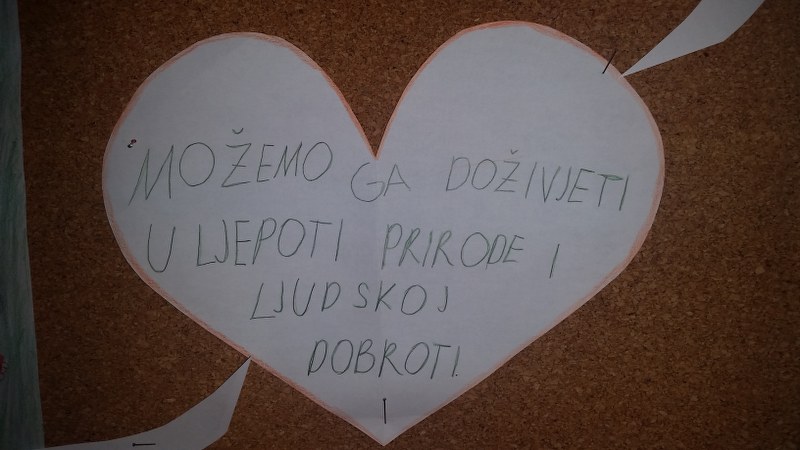 MOŽEMO GA DOŽIVJETI
U LJEPOTI PRIRODE I
LJUDSKOJ
DOBROTI.